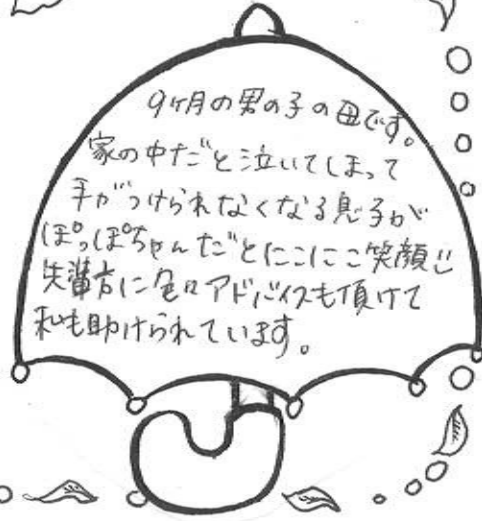 9ヶ月の男の子の母です。
家の中だと泣いてしまって
手がつけられなくなる息子が
ぽっぽちゃんだとにこにこ笑顔
先輩方に色々アドバイスも頂けて
私も助けられています。